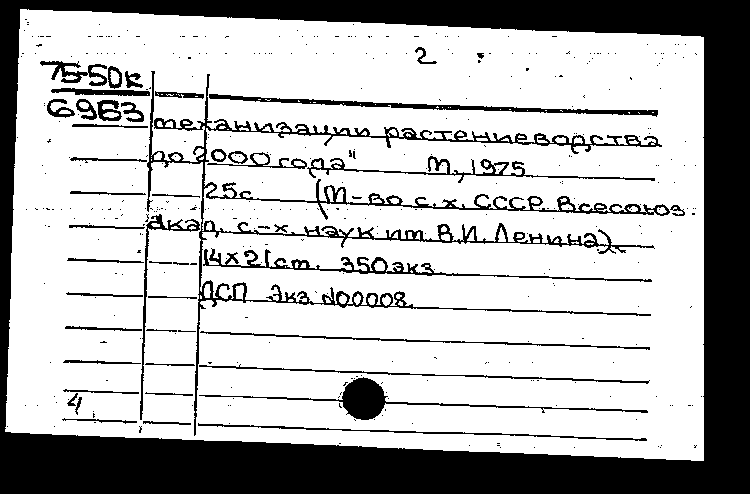 2
75-50к
6963
механизации растениеводства
до 2000 года" М., 1975
25с (М-во с.х. СССР. Всесоюз.
акад. с-х. наук им. В.И. Ленина).
14х21см. 350экз
ДСП Экз. №00008
4